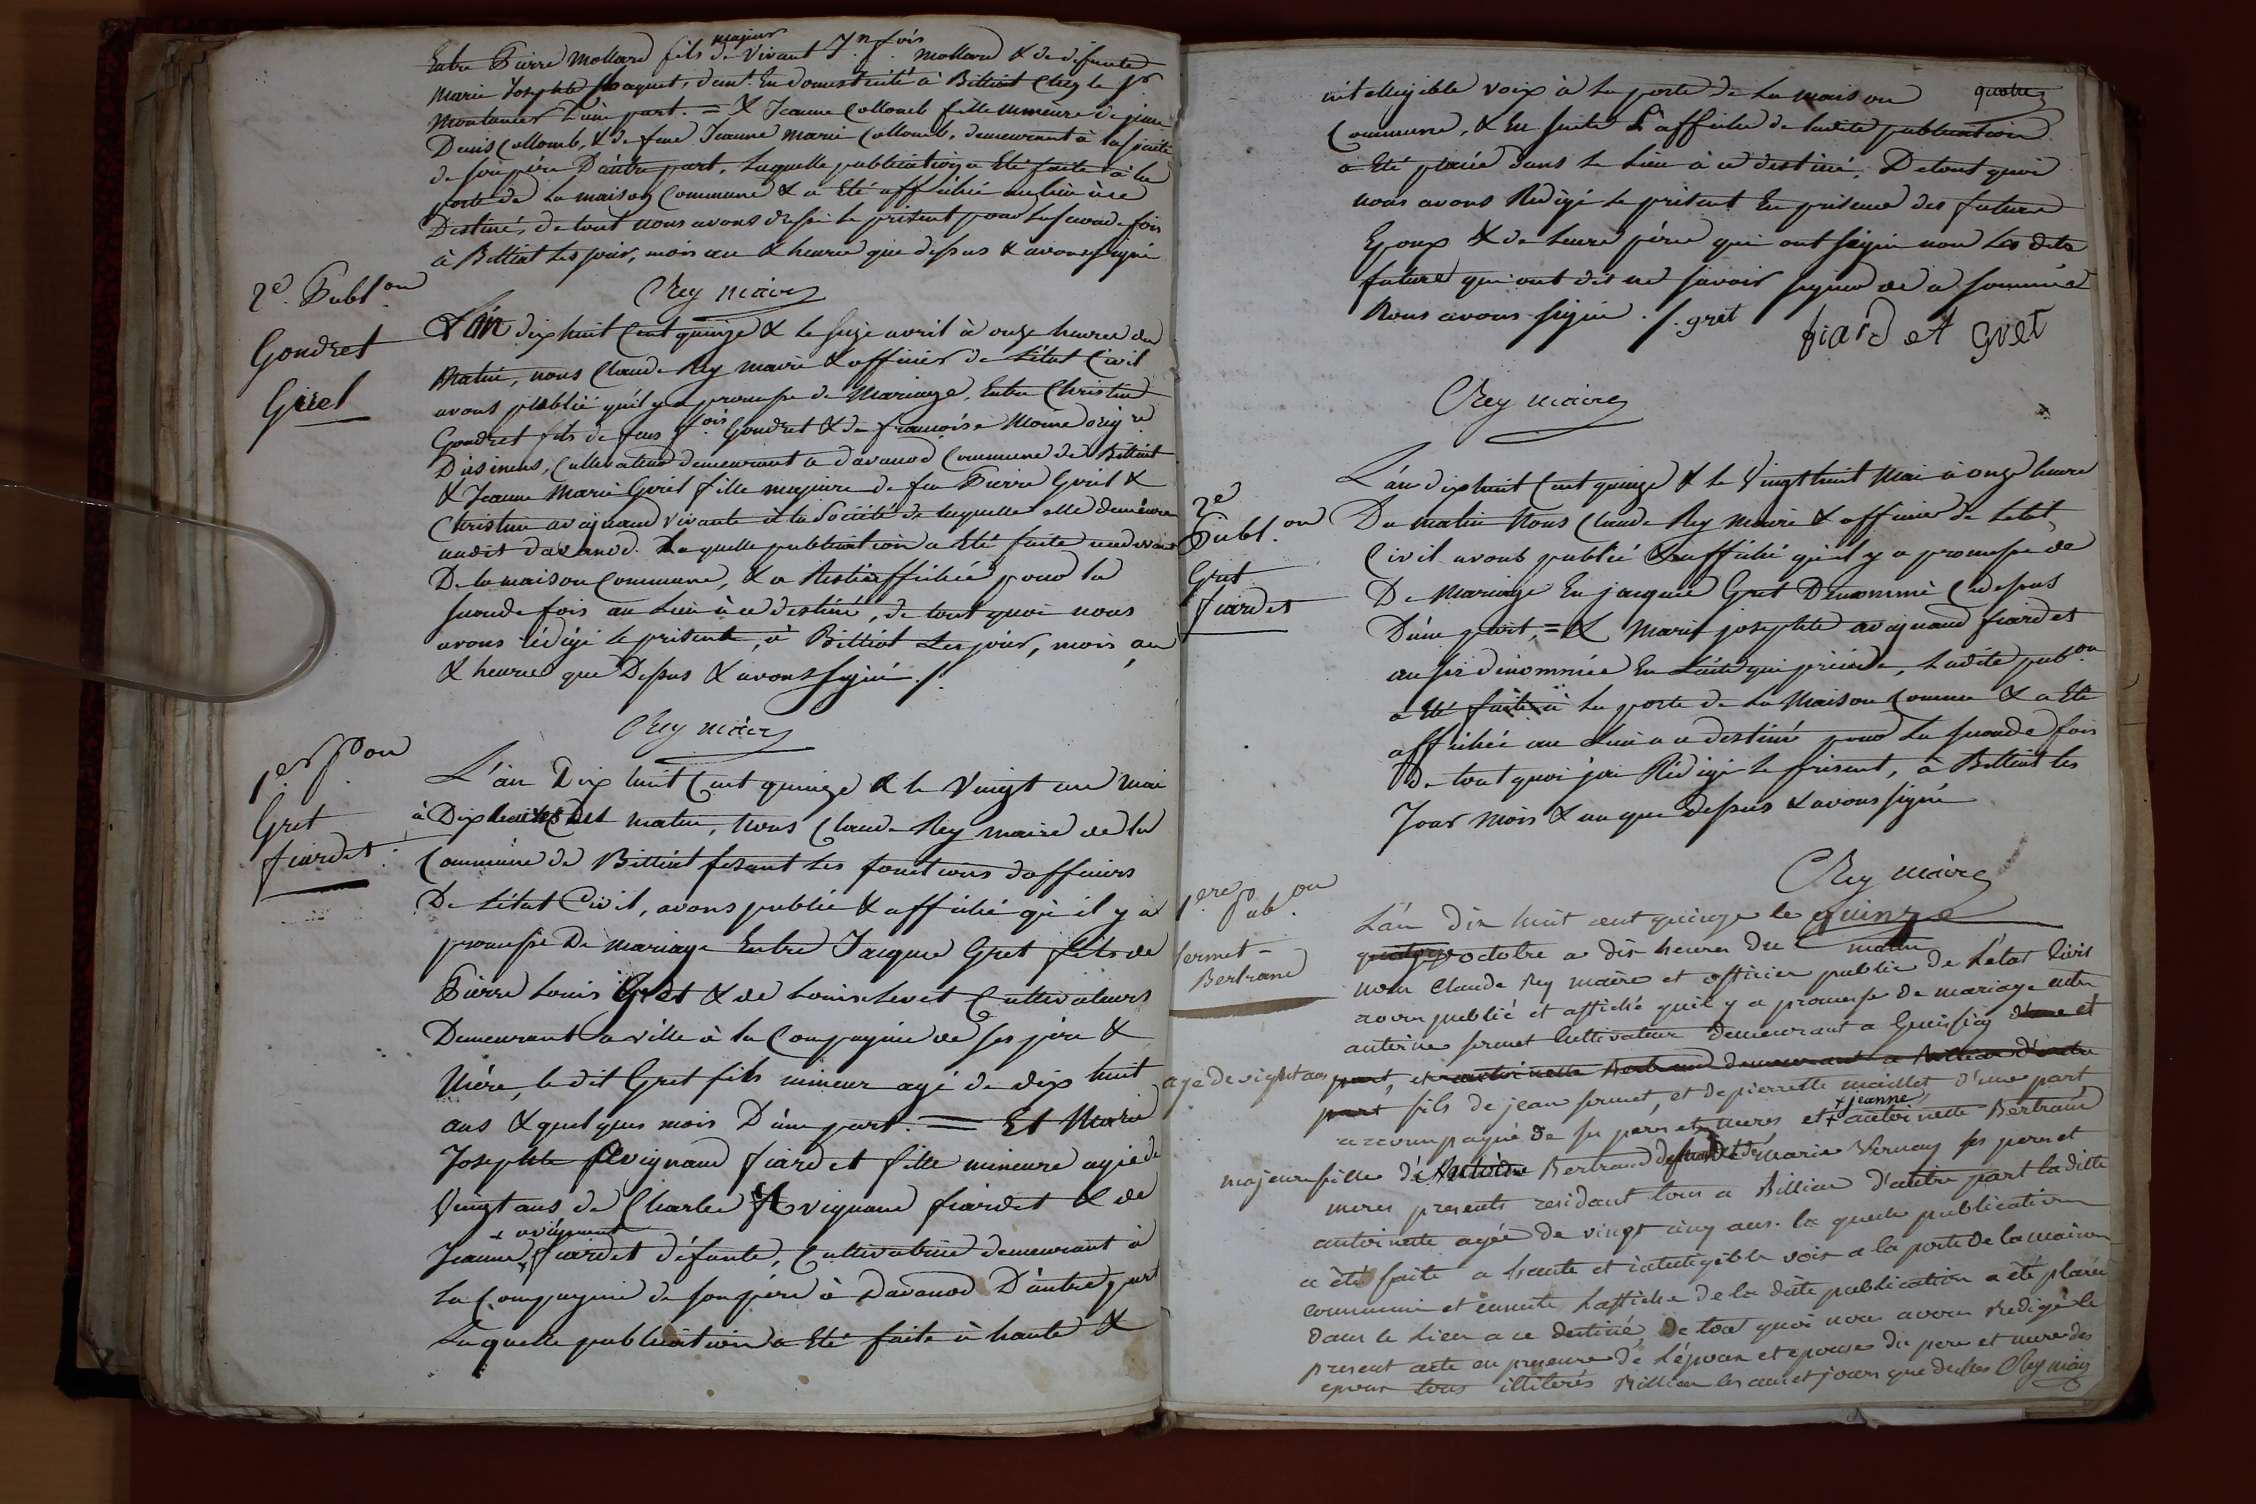 Entre Pierre Mollard fils majeur de vivant Jn fois Mollard & de defunte
Marie Josephte paquet, demt. En domesticité à Billiat Chez le Sr
Montanier D'une part. = & Jeanne Collomb fille mineure de
Denis Collomb, & de feue Jeanne Marie Collomb, demeurant à la société
de son père D'autre part, Laquelle publication a Eté faite à la
porte de La maison Commune & a Eté affichée au lieu à ce
Destiné, de tout nous avons dressé le présent pour la seconde fois
à Billiat Les jour, mois an & heure que dessus & avons signé
CRey maire
2e. Publ.on
Gondret
Griel
L'an dix huit Cent quinze & le seize avril à onze heures du
Matin, nous Claude Rey maire & officier de L'état Civil
avons publié qu'il y a promesse de Mariage, Entre Christin
Gondret fils de feus fois Gondret & de françoise Moine
Cultivateur demeurant a davanod Commune de Billiat
& Jeanne Marie Griel fille majeure de feu Pierre Griel &
Christine avignand vivante à la Société de laquelle elle demeure
audit davanod. Laquelle publication a Eté faite au devant
De la maison Commune, & a Resté affichée pour la
seconde fois au Lieu à ce destiné, de tout quoi nous
avons rédigé le présent, à Billiat Les jour, mois, an
& heure que Dessus & avons signé ./.
CRey maire
1er p.on
Gret
fiardet.
L'an Dix huit Cent quinze & le Vingt un Mai
à Dix heures du matin, Nous Claude Rey maire de la
Commune de Billiat fesant Les fonctions d'officiers
De L'état Civil, avons publié & affiché qu'il y a
promesse De mariage Entre Jacque Gret fils de
Pierre Louis Gret & de Louise Levet Cultivateurs
Demeurant a ville à la Compagnie de ses père &
Mère, le dit Gret fils mineur agé de dix huit
ans & quelques mois D'une part. = Et Marie
Josephte Avignand fiardet fille mineure agée de
Vingt ans de Charle Avignand fiardet & de
Jeanne + avignand fiardet défunte, Cultivatrice demeurant à
La Compagnie de son père à Davanod D'autre part
Laquelle publication a Eté faite à haute &
intelligible voix à La porte de La maison quatre
Commune, & En suite L'affiche de ladite publication
a Eté placée dans Le Lieu à ce destiné. De tout quoi
nous avons Rédigé Le présent En présence des future
Epoux & de Leurs père qui ont signé non Les dits
future qui ont dit ne savoir signer de ce sommé
Nous avons signé ./. gret fiardet gret
CRey maire
2e
Publ.on
Gret
fiardet
L'an dix huit Cent quinze & le Vingt huit Mai à onze heure
Du matin Nous Claude Rey Maire & officier de Létat
Civil avons publié & affiché qu'il y a promesse de
De Mariage En jacque Gret Dénommé Cidessus
D'une part, = & Marie josephte avignand fiardet
aussi dénommée En L'acte qui précéde, Ladite pub.on
a Eté faite à La porte de La Maison Comme & a Eté
affichée au Lieu a ce destiné pour La seconde fois
De tout quoi j'ai Rédigé le présent, à Billiat les
Jour Mois & an que Dessus & avons signé
CRey maire
1ere Pub.on
sermet-
Bertrand
L'an dix huit cent quinze le quinze
quatorze octobre a dix heures du matin
nous Claude Rey maire et officier public de L'état Civil
avons publié et affiché quil y a promesse de mariage entre
antoine sermet Cultivateur demeurant a d'une et
age de vight ans part, et antoinette Bertrand demeurant a Billiat d'autre
part fils de jean sermet, et de pierrette maillet d'une part
accompagné de ses peres et meres et + jeanne antoinette Bertrand
majeure fille d'Antoine Bertrand marie Vernay ses peres et
meres presents residant tous a Billiat d'autre part la ditte
antoinette agée de vingt cinq ans. la quelle publication
a été faite a haute et intelligible voix a la porte de la maison
commune et ensuite L'affiche de la dite publication a été placée
dans le Lieu a ce destiné, de tout quoi nous avons Redigé le
present acte en presence de L'epoux et epouse du pere et mere des
epoux tous illiterés Billiat les an et jours que dessus CRey maire